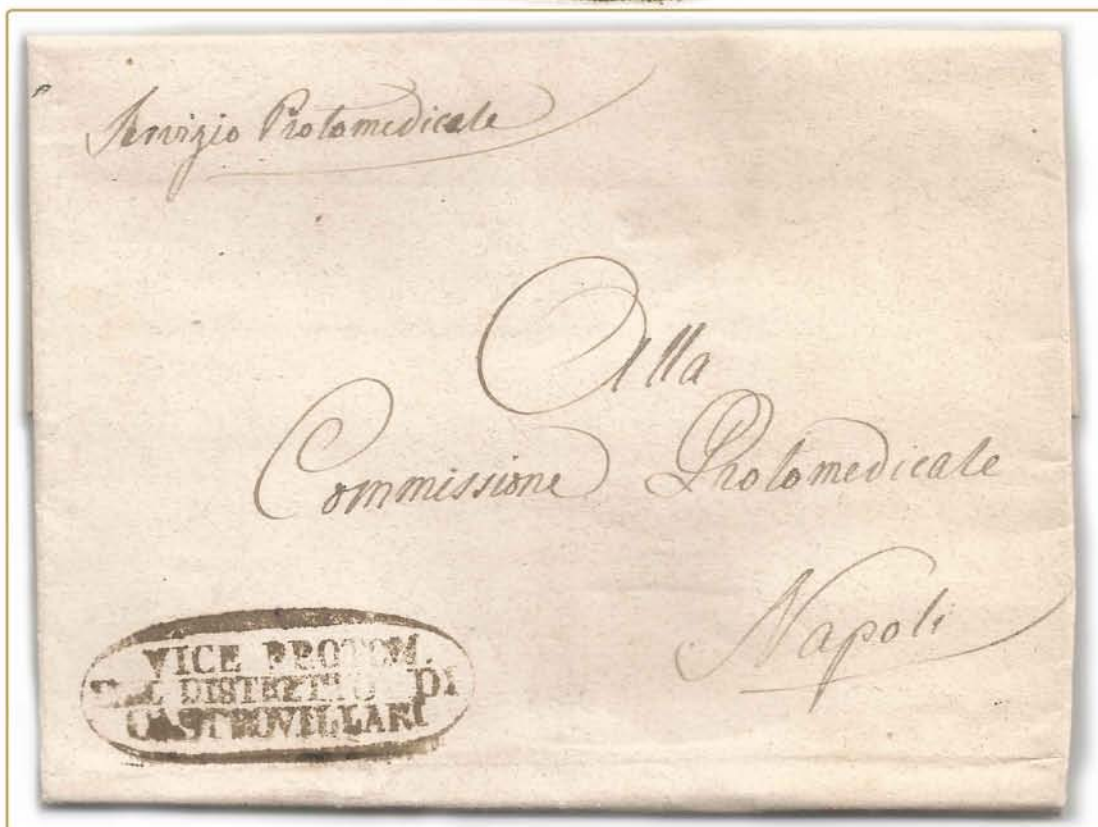 Servizio Protomedicale
Alla
Commissione Protomedicale
Napoli
VICE PROTOM.
DEL DISTRETTO DI
CASTROVILLARI